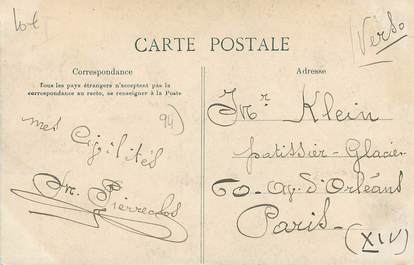 10€
Verso
CARTE POSTALE
Correspondance
Tous les pays étrangers n'acceptent pas la
correspondance au recto, se renseigner à la Poste
Adresse
94)
mes
Mr Klein
patissier-Glacier
60-av. d'Orléans
Paris-
(XIV)